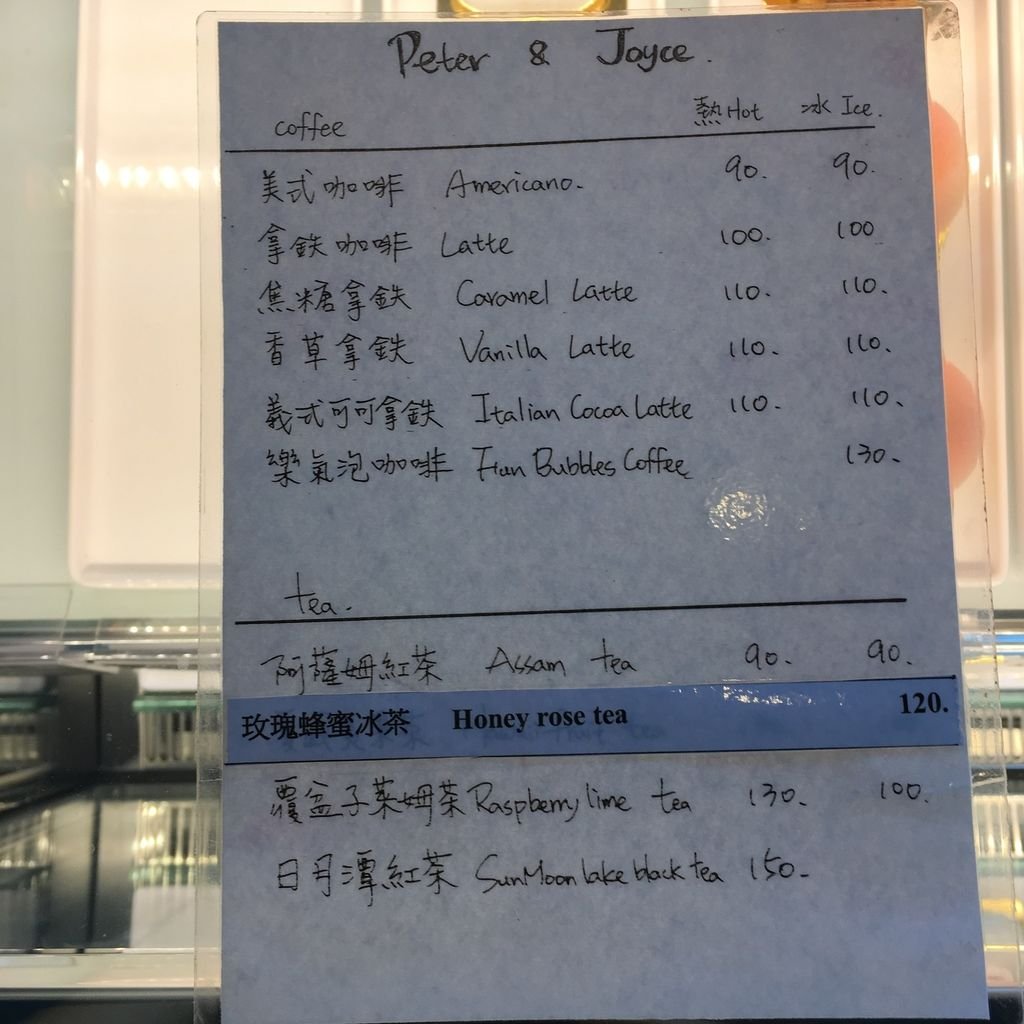 Peter & Joyce.
coffee 熱Hot 冰 Ice.
美式咖啡 Americano. 90. 90.
拿鉄咖啡 Latte 100. 100
焦糖拿鉄 Caramel Latte 110. 110.
香草拿鉄 Vanilla Latte 110. 110.
義式可可拿鉄 Italian Cocoa Latte 110. 110.
樂氣泡咖啡 Fun Bubbles Coffee 130.
tea.
阿薩姆紅茶 Assam tea 90. 90.
玫瑰蜂蜜冰茶 Honey rose tea 120.
覆盆子萊姆茶 Raspberry lime tea 130. 100.
日月潭紅茶 Sun Moon lake black tea 150.